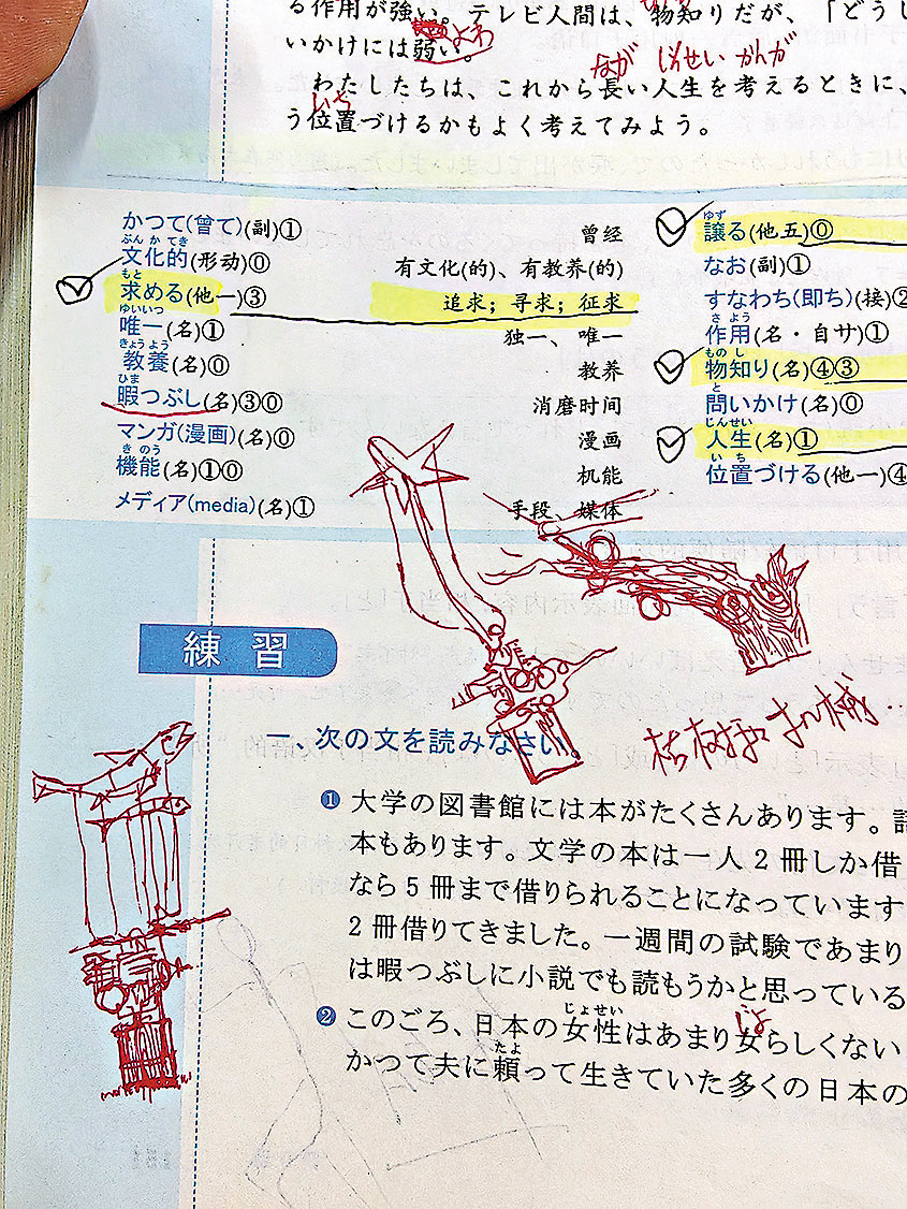 る作用が強い。テレビ人間は、物知りだが、「どうし
よわ
いかけには弱い。
なが じんせい かんが
わたしたちは、これから長い人生を考えるときに、
いち
う位置づけるかもよく考えてみよう。
かつて(曾て)(副)① 曾经
ぶんかてき
文化的(形动)⓪ 有文化(的)、有教养(的)
もと
求める(他一)③ 追求；寻求；征求
ゆいいつ
唯一(名)① 独一、唯一
きょうよう
教養(名)⓪ 教养
ひま
暇つぶし(名)③⓪ 消磨时间
マンガ(漫画)(名)⓪ 漫画
きのう
機能(名)①⓪ 机能
メディア(media)(名)① 手段、媒体
ゆず
譲る(他五)⓪
なお(副)①
すなわち(即ち)(接)②
さよう
作用(名・自サ)①
ものし
物知り(名)④③
と
問いかけ(名)⓪
じんせい
人生(名)①
いち
位置づける(他一)④
練習
一、次の文を読みなさい。
❶ 大学の図書館には本がたくさんあります。
本もあります。文学の本は一人2冊しか借
なら5冊まで借りられることになっています
2冊借りてきました。一週間の試験であまり
は暇つぶしに小説でも読もうかと思っている
じょせい
❷ このごろ、日本の女性はあまり女らしくない
たよ
かつて夫に頼って生きていた多くの日本の